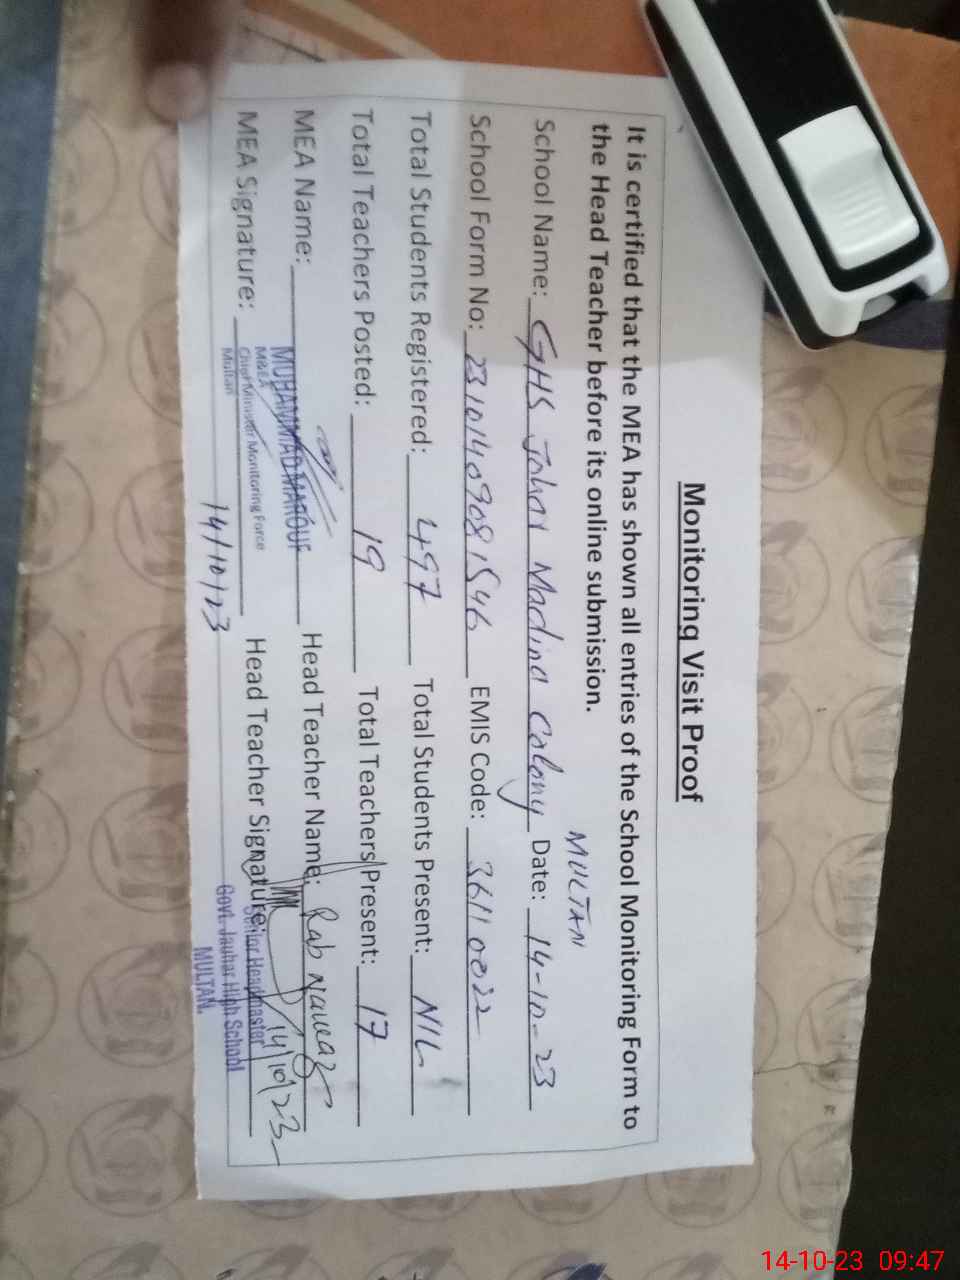 Monitoring Visit Proof
It is certified that the MEA has shown all entries of the School Monitoring Form to
the Head Teacher before its online submission.
MULTAN
School Name: GHS Johar Madina Colony Date: 14-10-23
School Form No: 23101409081546 EMIS Code: 36110022
Total Students Registered: 497 Total Students Present: NIL
Total Teachers Posted: 19 Total Teachers Present: 17
MEA Name: MUHAMMAD MAROUF Head Teacher Name: Rab Nawaz
M&EA
Chief Minister Monitoring Force
Multan
MEA Signature: 14/10/23 Head Teacher Signature: 14/10/23
Senior Headmaster
Govt. Jauhar High School
MULTAN.
14-10-23 09:47